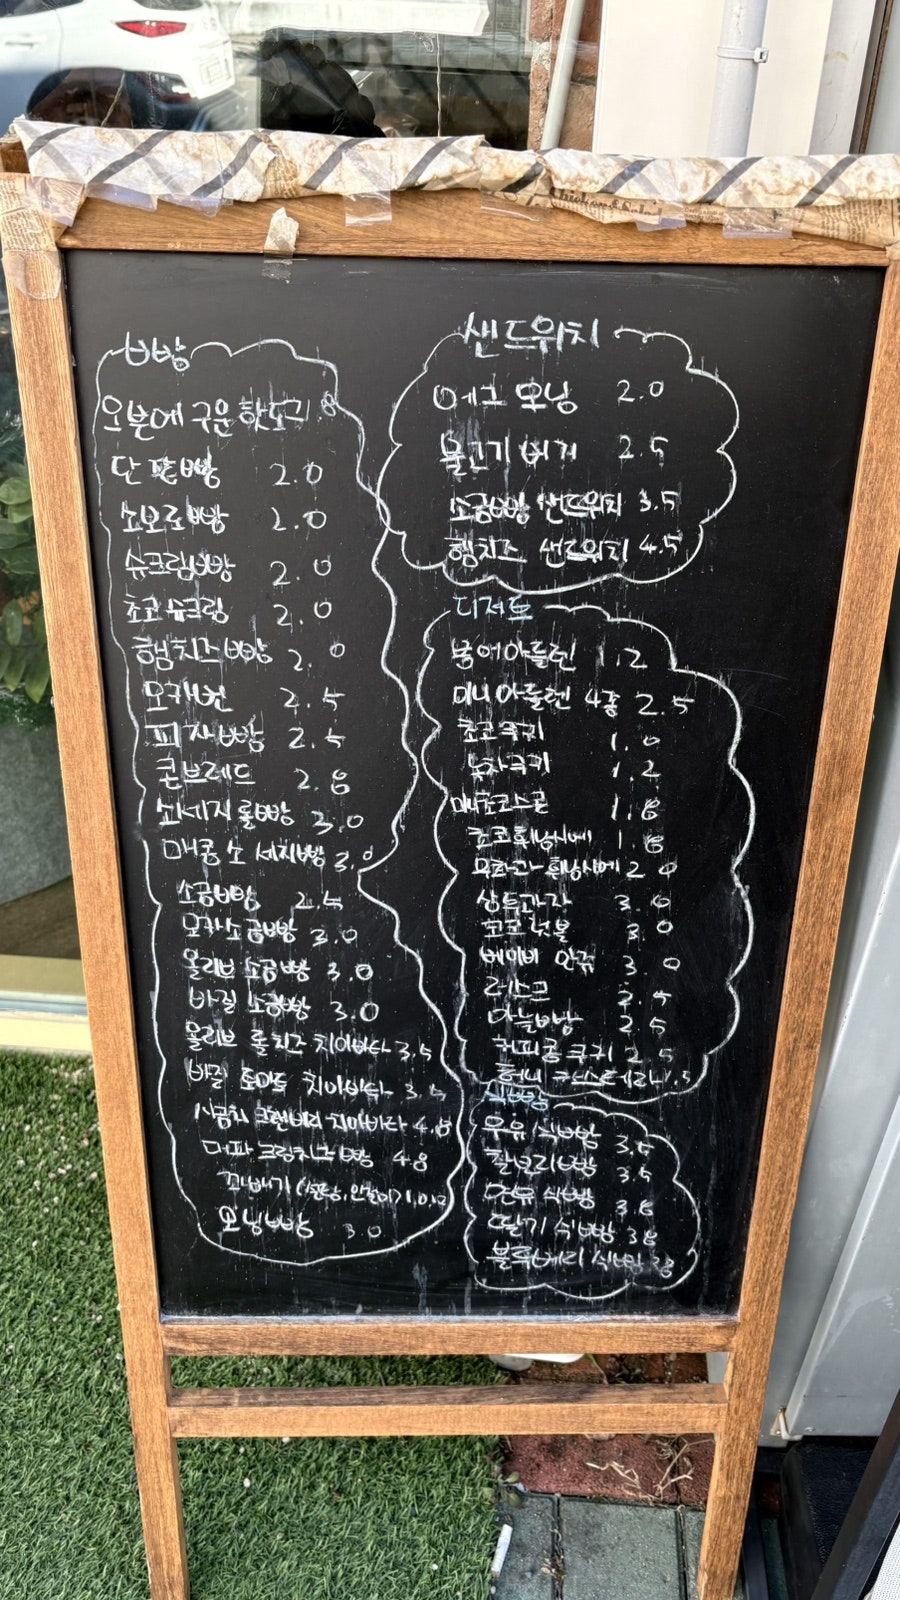 빵
오븐에 구운 핫도그
단팥빵 2.0
소보로빵 2.0
슈크림빵 2.0
초코슈크림 2.0
햄치즈빵 2.0
모카번 2.5
피자빵 2.5
콘브레드 2.8
소세지롤빵 3.0
매콤소세지빵 3.0
소금빵 2.5
모카소금빵 3.0
올리브 소금빵 3.0
바질 소금빵 3.0
올리브 롤치즈 치아바타 3.5
바질 토마토 치아바타 3.5
시금치 크랜베리 치아바타 4.8
대파크림치즈빵 4.8
꽈배기
모닝빵 3.0
샌드위치
에그모닝 2.0
불고기 버거 2.5
소금빵 샌드위치 3.5
햄치즈 샌드위치 4.5
디저트
붕어마들렌 1.2
미니마들렌 4종 2.5
초코쿠키 1.0
녹차쿠키 1.2
초코스콘 1.8
초코휘낭시에 1.8
무화과휘낭시에 2.0
상투과자 3.0
코코넛볼 3.0
베이비 만쥬 3.0
러스크
마늘빵 2.5
커피콩쿠키 2.5
허니 카스테라
식빵
우유식빵 3.5
찰보리빵 3.5
식빵 3.8
딸기 식빵 3.8
블루베리 식빵 3.8